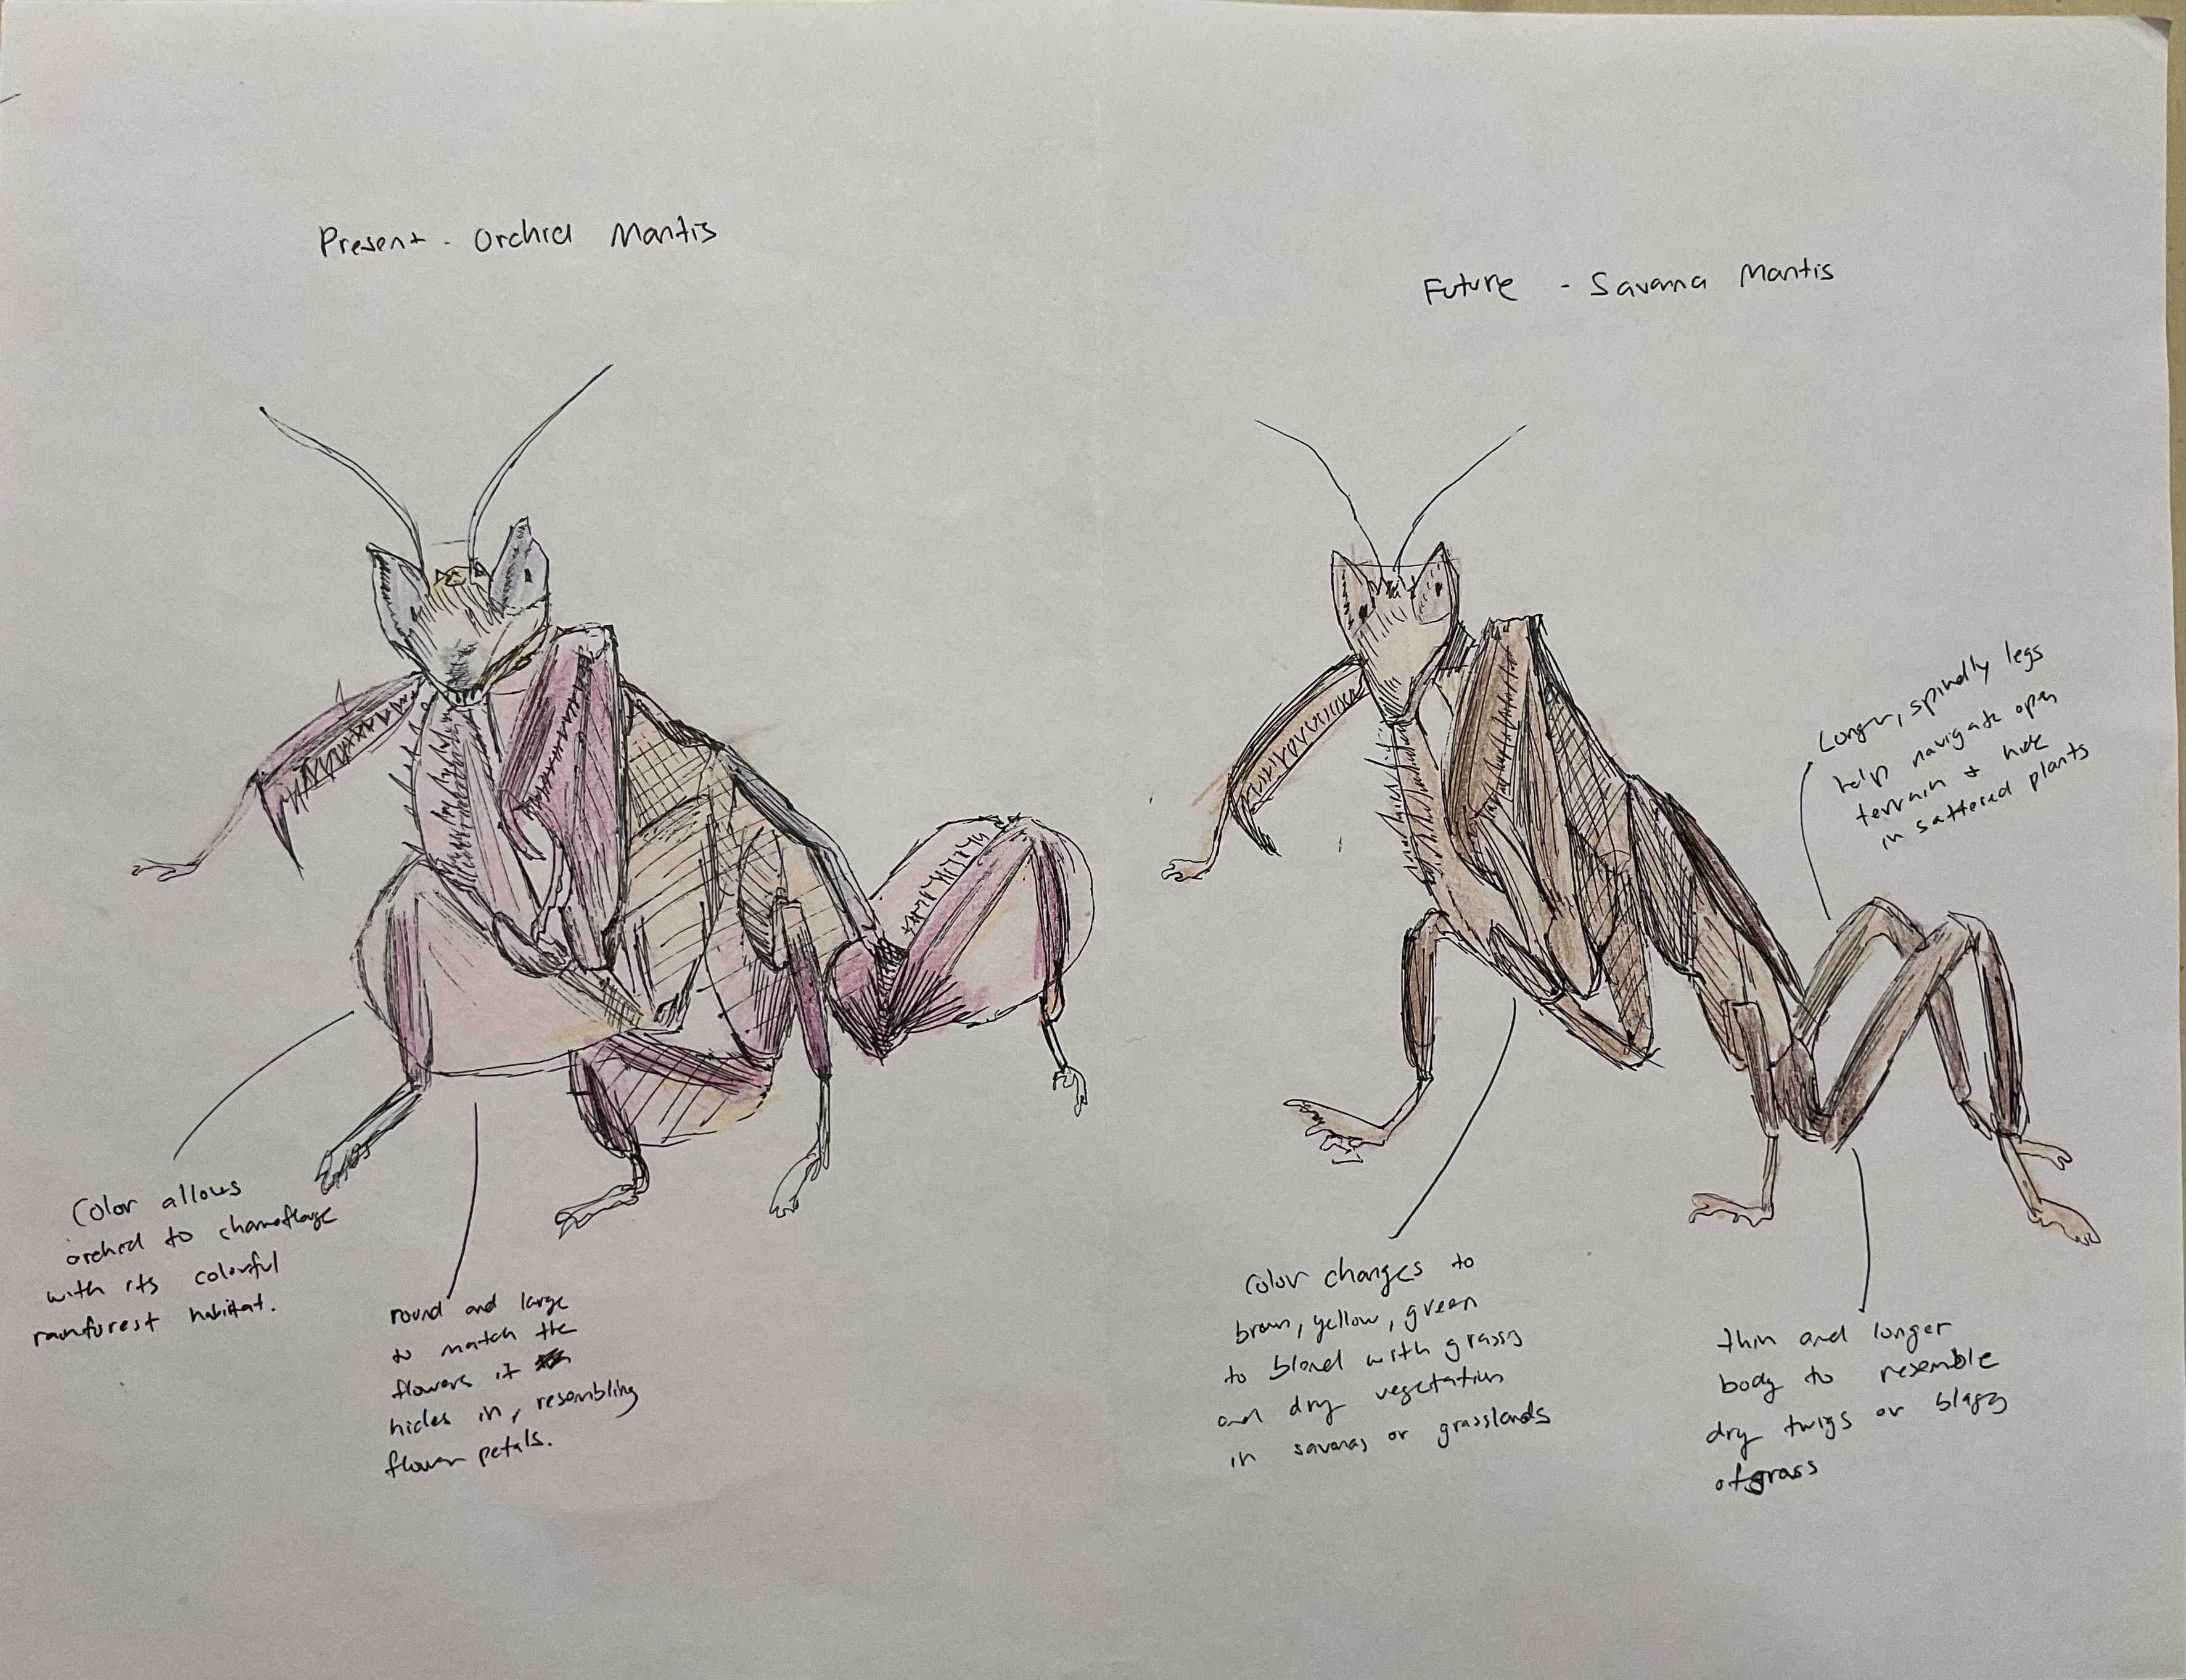 Present - Orchid Mantis
Color allows
orched to chamoflage
with its colorful
rainforest habitat.
round and large
to match the
flowers it
hides in, resembling
flower petals.
Future - Savana Mantis
Longer, spindly legs
help navigate open
terrain + hide
in sattered plants
Color changes to
brown, yellow, green
to blend with grasses
and dry vegetation
in savanas or grasslands
thin and longer
body to resemble
dry twigs or
of grass